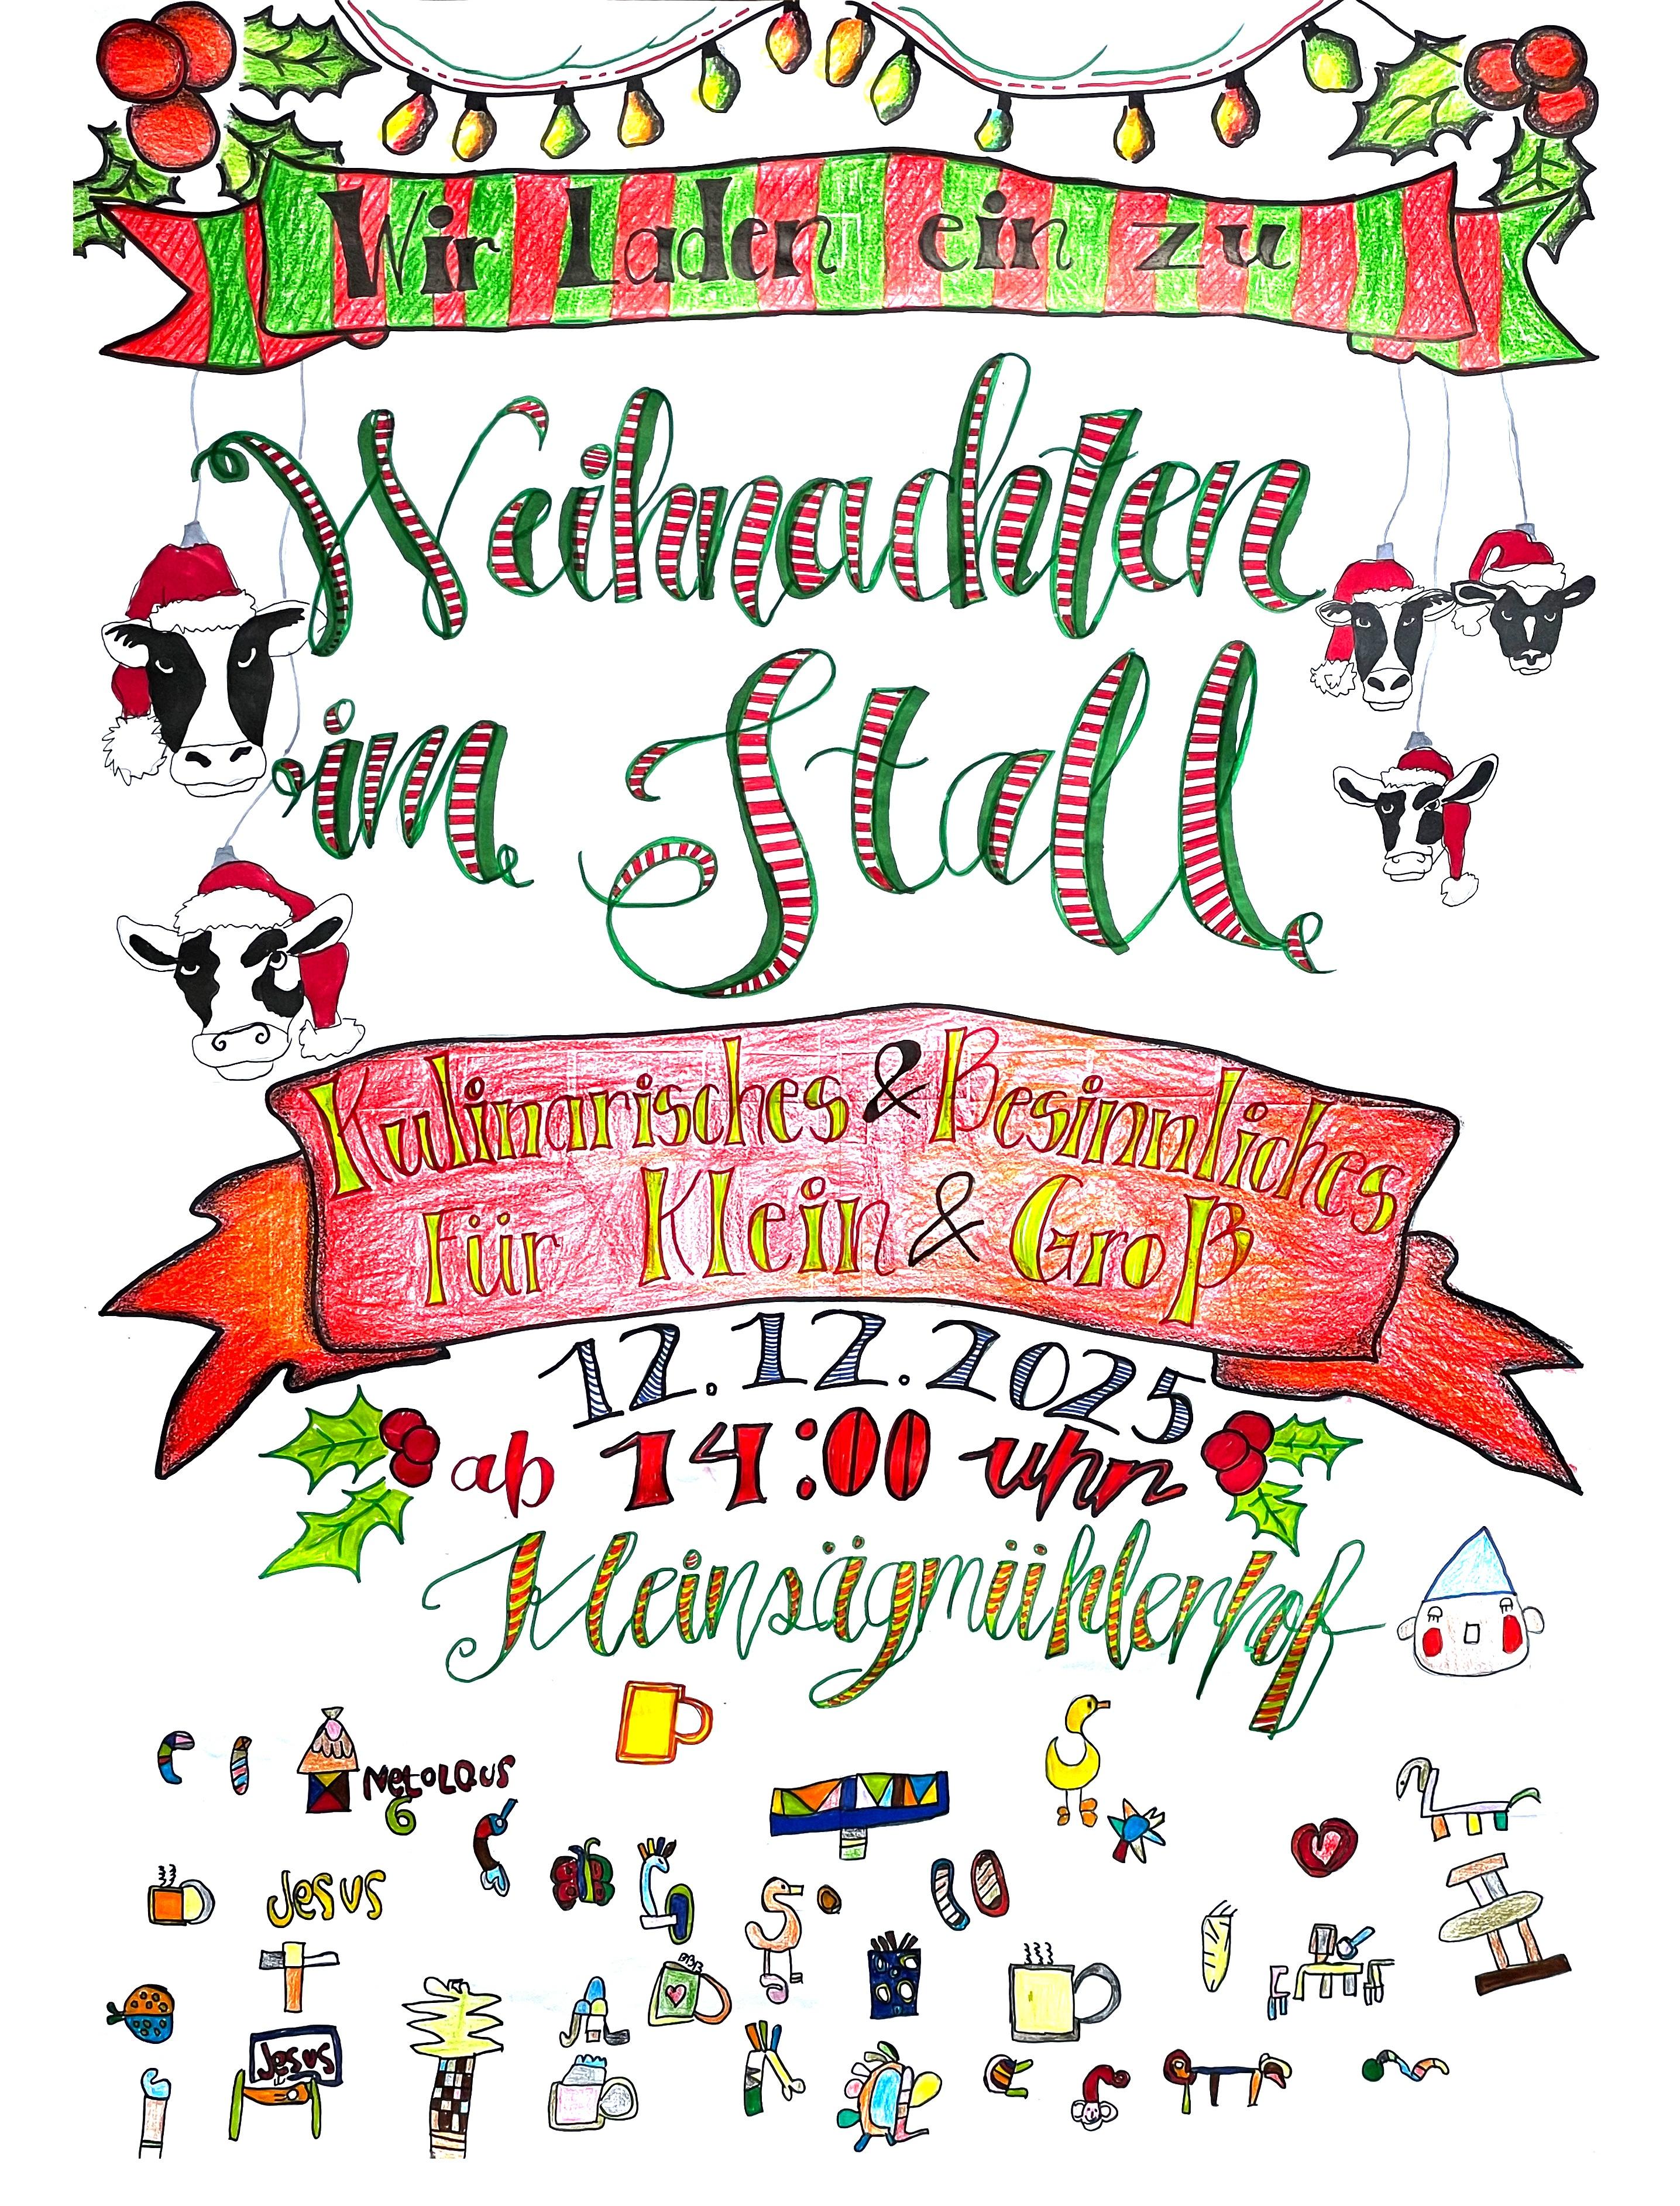 Wir Laden ein zu
Weihnachten
im Stall
Kulinarisches & Besinnliches
Für Klein & Groß
12.12.2025
ab 14:00 uhr
Kleinsägmühlerhof
NeLoLaus
6
Jesus
Jesus